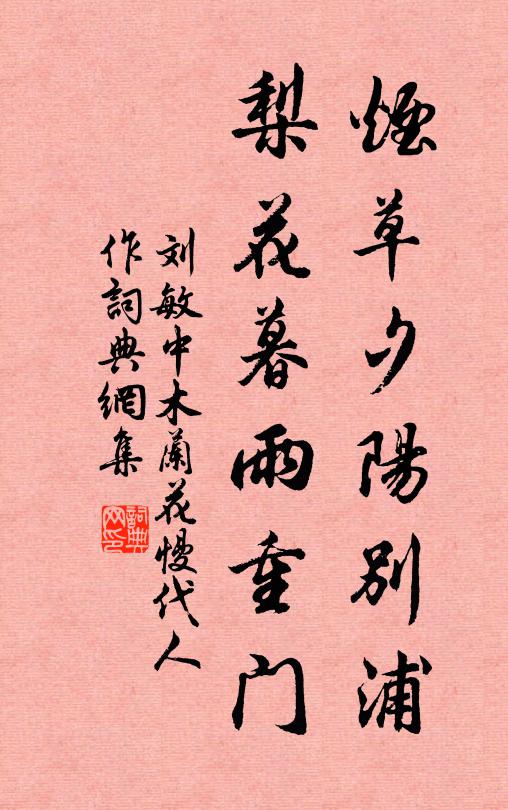 煙草夕陽別浦
梨花暮雨重门
刘敏中木蘭花慢代人
作詞典網集
詞典
网印